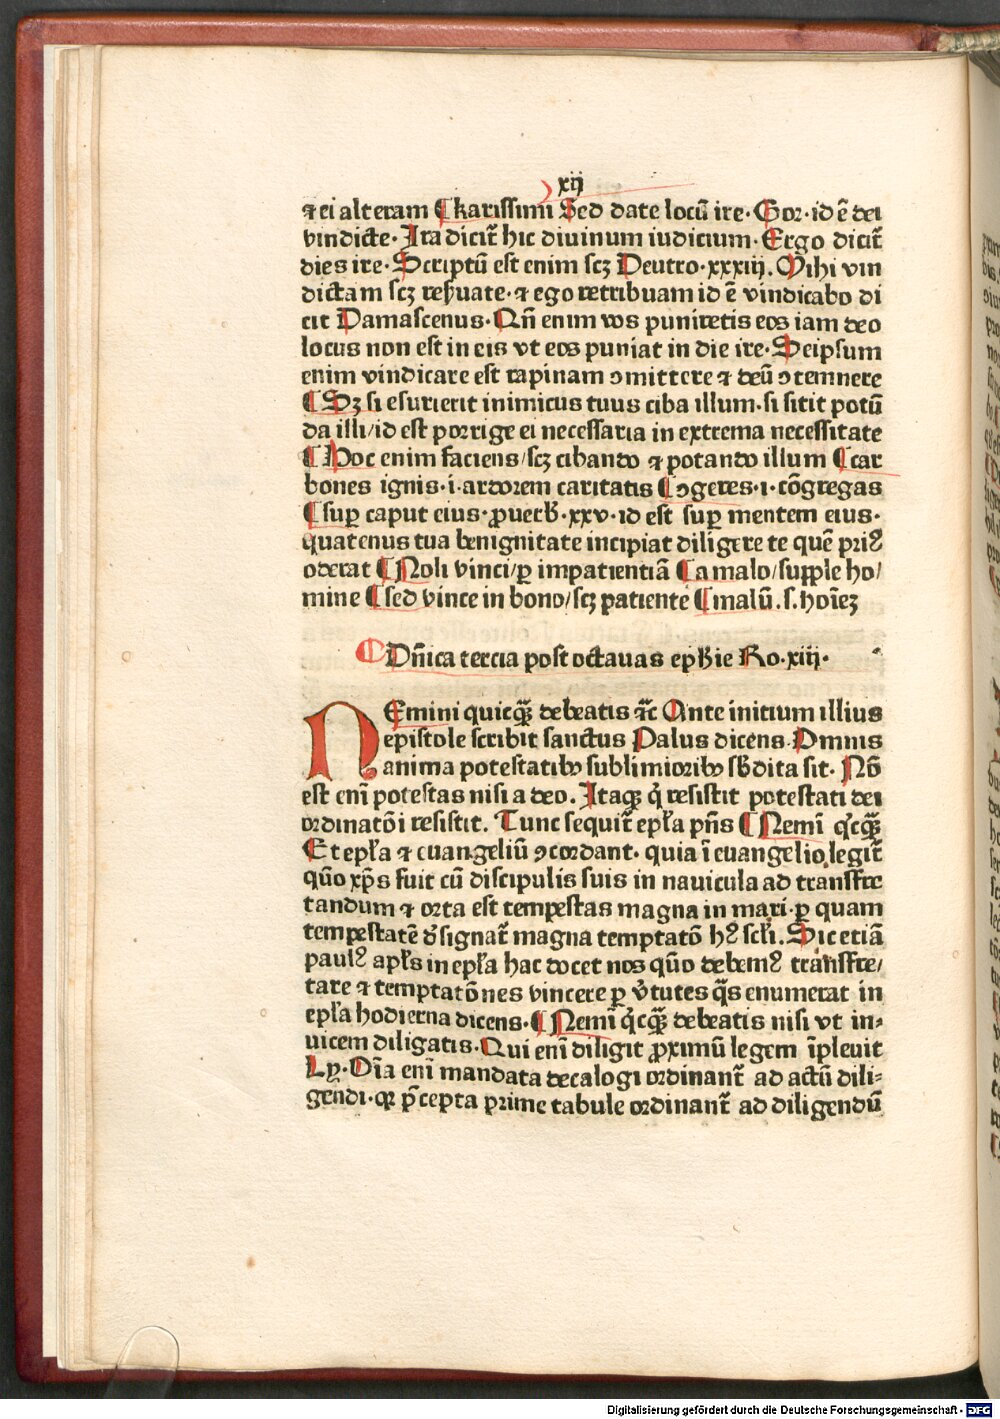 xij
⁊ ei alteram ¶ karissimi Sed date locū ire· Gor·id ē dei
vindicte· Ira dicit̄ hic diuinum iudicium· Ergo dicit̄
dies ire· Scriptū est enim scꝫ Deutro·xxxiij. Mihi vin
dictam scꝫ res̄uate·⁊ ego retribuam id ē vindicabo di
cit Damascenus·Qn̄ enim vos punitetis eos iam deo
locus non est in eis vt eos puniat in die ire·Seipsum
enim vindicare est rapinam ↄmittere ⁊ deū ↄtemnere
¶ Sꝫ si esurierit inimicus tuus ciba illum·si sitit potū
da illi/id est porrige ei necessaria in extrema necessitate
¶ Hoc enim faciens/scꝫ cibando ⁊ potando illum ¶ car
bones ignis·i·ardorem caritatis ¶ ↄgeres·i·cōgregas
¶ suꝑ caput eius·ꝓuerb̄·xxv·id est suꝑ mentem eius·
quatenus tua benignitate incipiat diligere te quē priꝰ
oderat ¶ Noli vinci/ꝑ impatientiā ¶ a malo/supple ho/
mine ¶ sed vince in bono/scꝫ patiente ¶ malū.s.hoīeꝫ
¶ Dn̄ica tercia post octauas eph̄ie Ro·xiij·
NEmini quicꝙ̄ debeatis ⁊c̄ Ante initium illius
epistole scribit sanctus Palus dicens·Omnis
anima potestatibꝰ sublimioribꝰ sb̄dita sit· Nō
est eni̅ potestas nisi a deo. Itaqꝫ q̇ resistit potestati dei
ordinatōi resistit. Tunc sequit̄ epl̄a pn̄s ¶ Nemī q̇cꝙ̄
Et epl̄a ⁊ euangeliū ↄcordant· quia ī euangelio legit̄
quō xp̄s fuit cū discipulis suis in nauicula ad transfre
tandum ⁊ orta est tempestas magna in mari·ꝑ quam
tempestatē d̄signat̄ magna temptatō hꝰ scl̄i. Sic etiā
paulꝰ apl̄s in epl̄a hac docet nos quō debemꝰ transfre/
tare ⁊ temptatōnes vincere ꝑ v̄tutes q̄s enumerat in
epl̄a hodierna dicens·¶ Nemī q̇cꝙ̄ debeatis nisi vt in⸗
uicem diligatis·Qui enī diligit ꝓximū legem īpleuit
Ly·Oīa enī mandata decalogi ordinant̄ ad actū dili⸗
gendi·qꝛ p̄cepta prime tabule ordinant̄ ad diligendū
Digitalisierung gefördert durch die Deutsche Forschungsgemeinschaft - DFG